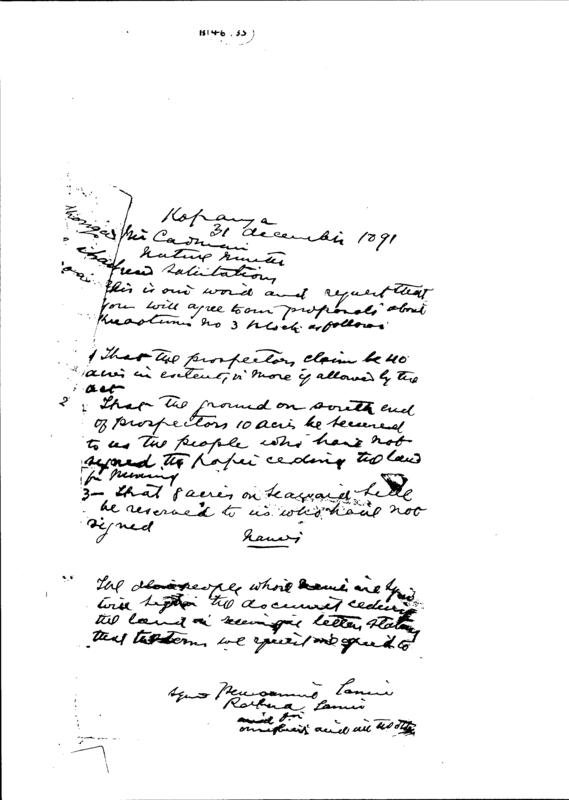 31 december 1891
Mr Cadman
Native Minister
Salutations
This is our word and request that
you will agree to our proposals about
no 3 block as follows
1 That the prospectors claim be 40
acres in extent, or more if allowed by the
act
2 That the ground on south end
of prospectors 10 acres be secured
to us the people who have not
signed the paper ceding the land
for mining
3 - That 8 acres on seaward side
be reserved to us who have not
signed
Names
The people whose names are
will sign the document ceding
the land on receiving letter stating
that the terms we request are agreed to
and for
ourselves and all the others